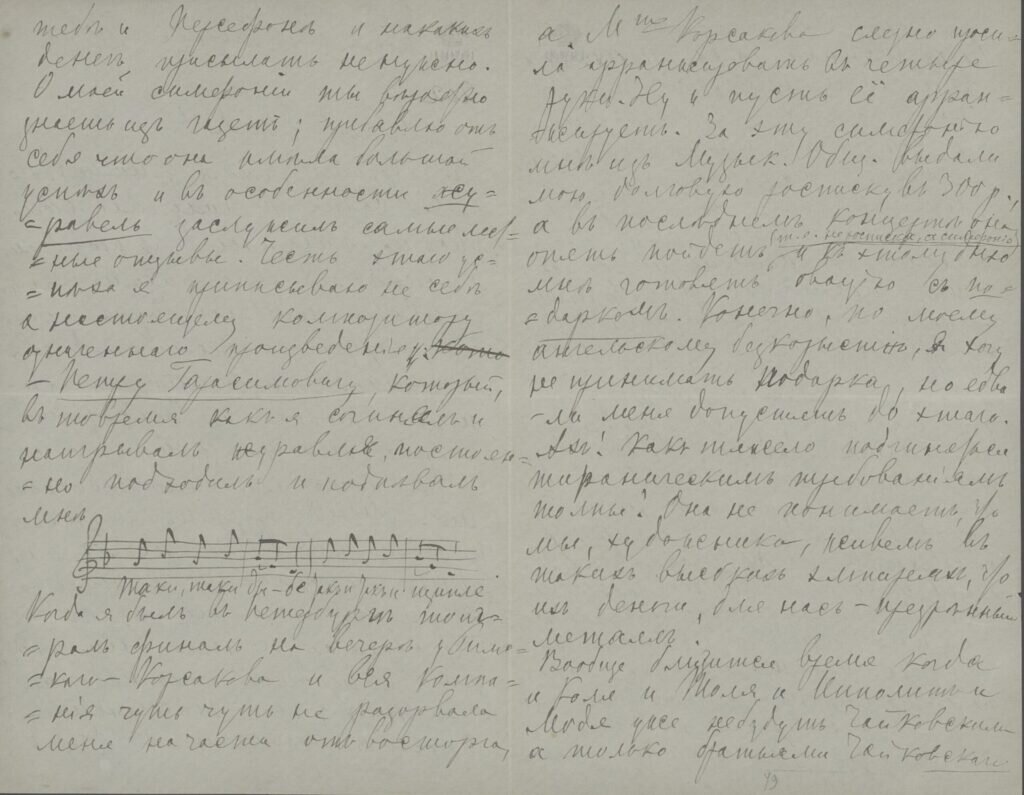 тебѣ и Персефонѣ и никакихъ
денегъ присылать не нужно.
О моей симфоніи ты вѣроятно
знаешь изъ газетъ; прибавлю отъ
себя что она имѣла большой
успѣхъ и въ особенности жу-
=равель заслужилъ самые лест-
=ные отзывы. Честь этаго ус-
=пѣха я приписываю не себѣ
а настоящему композитору
означеннаго произведенія
– Петру Герасимовичу, который,
въ то время какъ я сочинялъ и
наигрывалъ журавля, постоян-
=но подходилъ и подпѣвалъ
мнѣ
Когда я былъ въ Петербургѣ то иг-
=ралъ финалъ на вечерѣ у Римс-
=каго-Корсакова и вся компа-
=нія чуть чуть не разорвала
меня на части отъ восторга,
а Mme Корсакова слезно проси-
ла арранжировать въ четыре
руки. Ну и пусть её арран-
=жируетъ. За эту симфонію
мнѣ изъ Музык. Общ. выдали
мою долговую росписку въ 300 р.,
а въ послѣднемъ концертѣ она
(т.е. не росписка, а симфонія)
опять пойдетъ и къ этому дню
мнѣ готовятъ овацію съ по-
=даркомъ. Конечно, по моему
ангельскому безкорыстію, я хочу
не принимать подарка, но едва
-ли меня допустятъ до этаго.
Ахъ! какъ тяжело подчиняться
тираническимъ требованіямъ
толпы! Она не понимаетъ, что
мы, художники, живемъ въ
такихъ высокихъ эмпиреяхъ, что
ихъ деньги, для насъ – презрѣнный
металлъ!
Вообще близится время когда
и Коля и Толя и Ипполитъ и
Модя уже небудутъ Чайковскими
а только братьями Чайковскаго